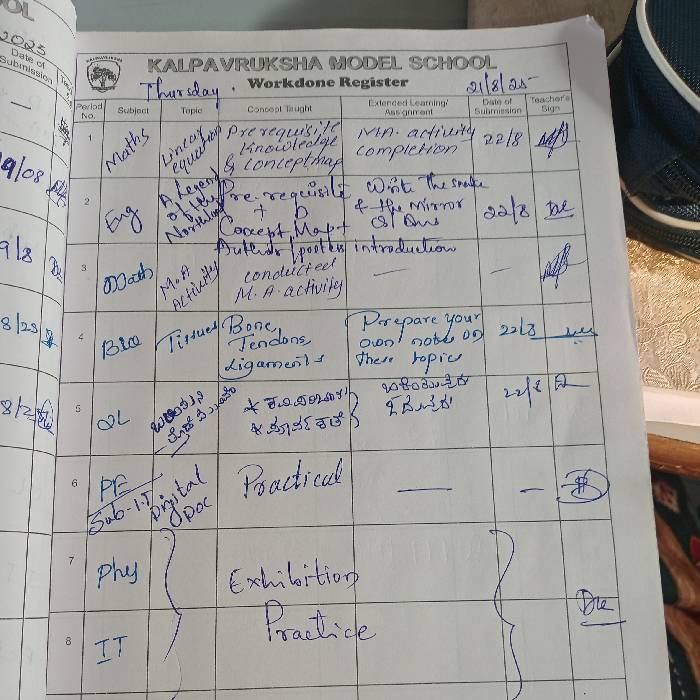 OOL
2025
Date of
Submission
19/08
9/8
8/23
KALPAVRUKSHA MODEL SCHOOL
Workdone Register
Thursday.
21/8/25
Period No.
Subject
Topic
Concept Taught
Extended Learning/ Assignment
Date of Submission
Teacher's Sign
1
Maths
Linear
equation
Prerequisite
knowledge
& conceptmap
M.A. activity
completion
22/8
2
Eng
A Legend
of the
Northland
Pre-requisite
+
Concept Map +
Author/poetess introduction
Write The snake
& the Mirror
Q/Ans
22/8
3
Math
M.A
Activity
conducted
M.A. activity
—
—
4
Bio
Tissues
Bone,
Tendons,
Ligaments
Prepare your
own notes on
these topics
22/8
5
2L
22/8
6
PE
Sub-I.T
Digital
Doc
Practical
—
—
7
Phy
Exhibition
8
IT
Practice